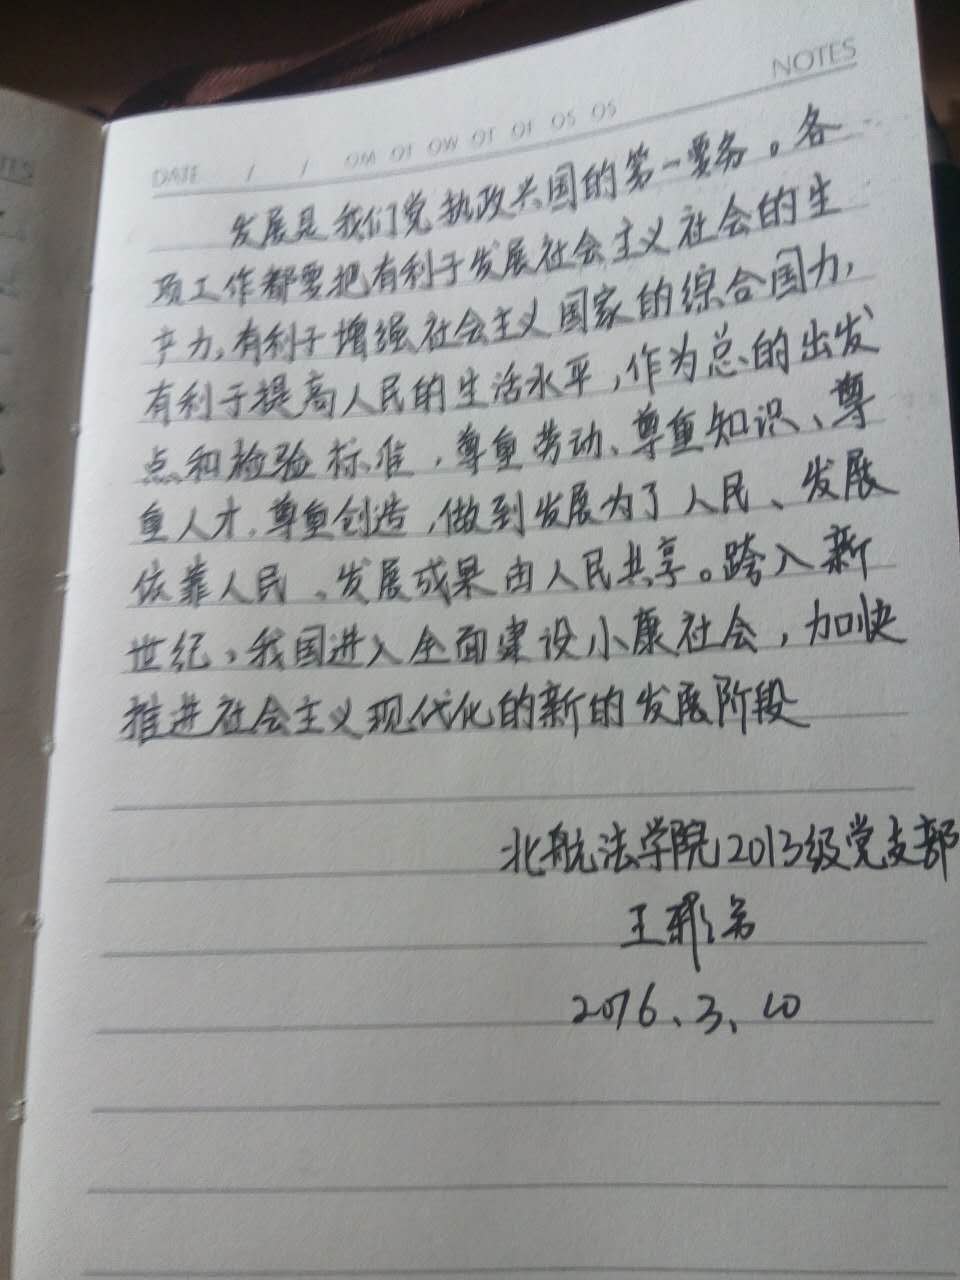 NOTES
DATE / / OM OT OW OT OF OS OS
发展是我们党执政兴国的第一要务。各
项工作都要把有利于发展社会主义社会的生
产力,有利于增强社会主义国家的综合国力,
有利于提高人民的生活水平,作为总的出发
点和检验标准,尊重劳动、尊重知识、尊
重人才,尊重创造,做到发展为了人民、发展
依靠人民、发展成果由人民共享。跨入新
世纪,我国进入全面建设小康社会,加快
推进社会主义现代化的新的发展阶段
北航法学院2013级党支部
王
2016、3、10